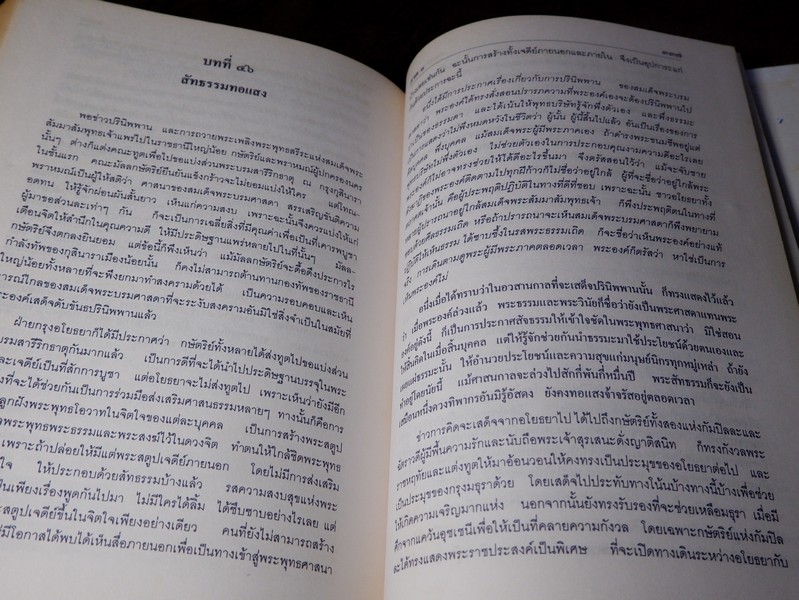 บทที่ ๔๖
สัทธรรมทอแสง
พอข่าวปรินิพพาน และการถวายพระเพลิงพระพุทธสรีระแห่งสมเด็จพระ
สัมมาสัมพุทธเจ้าแพร่ไปในราชธานีใหญ่น้อย กษัตริย์และพราหมณ์ผู้ปกครองนคร
นั้นๆ ต่างก็แต่งคณะทูตเพื่อไปขอแบ่งส่วนพระบรมสารีริกธาตุ ณ กรุงกุสินารา
ในชั้นแรก คณะมัลลกษัตริย์ยืนยันแข็งกร้าวจะไม่ยอมแบ่งให้ใคร แต่โทณะ
พราหมณ์เป็นผู้ให้สติว่า ศาสนาของสมเด็จพระบรมศาสดา สรรเสริญขันติความ
อดทน ให้รู้จักผ่อนผันสั้นยาว เห็นแก่ความสงบ เพราะฉะนั้นจึงควรแบ่งให้แก่
ผู้มาขอส่วนละเท่าๆ กัน ก็จะเป็นการเฉลี่ยสิ่งที่มีคุณค่าเพื่อเป็นที่เคารพบูชา
เตือนจิตให้สำนึกในคุณความดี ให้มีประดิษฐานแพร่หลายไปในที่นั้นๆ มัลล-
กษัตริย์จึงตกลงยินยอม แต่ข้อนี้ก็พึงเห็นว่า แม้มัลลกษัตริย์จะดื้อดึงประการไร
กำลังทัพของกุสินาราเมืองน้อยนั้น ก็คงไม่สามารถต้านทานกองทัพของราชธานี
ใหญ่น้อยทั้งหลายที่จะพึงยกมาทำสงครามด้วยได้ เป็นความรอบคอบและเห็น
การณ์ไกลของสมเด็จพระบรมศาสดาที่จะระงับสงครามอันมิใช่สิ่งจำเป็นในสมัยที่
พระองค์เสด็จดับขันธปรินิพพานแล้ว
ฝ่ายกรุงอโยธยาก็ได้มีประกาศว่า กษัตริย์ทั้งหลายได้ส่งทูตไปขอแบ่งส่วน
บรมสารีริกธาตุกันมาแล้ว เป็นการดีที่จะได้นำไปประดิษฐานบรรจุในพระ
และเจดีย์เป็นที่สักการบูชา แต่อโยธยาจะไม่ส่งทูตไป เพราะเห็นว่ายังมีอีก
งที่จะได้ช่วยกันเป็นการร่วมมือส่งเสริมศาสนธรรมหลายๆ ทางนั้นก็คือการ
ลูกฝังพระพุทธโอวาทในจิตใจของแต่ละบุคคล เป็นการสร้างพระสถูป
พระพุทธพระธรรมและพระสงฆ์ไว้ในดวงจิต ทำตนให้ใกล้ชิดพระพุทธ
เพราะถ้าปล่อยให้มีแต่พระสถูปเจดีย์ภายนอก โดยไม่มีการส่งเสริม
ใจ ให้ประกอบด้วยสัทธรรมบ้างแล้ว รสความสงบสุขแห่งพระ
นเพียงเรื่องพูดกันไปมา ไม่มีใครได้ลิ้ม ได้ซึบซาบอย่างไรเลย แต่
ะสถูปเจดีย์ขึ้นในจิตใจเพียงอย่างเดียว คนที่ยังไม่สามารถสร้าง
มีโอกาสได้พบได้เห็นสื่อภายนอกเพื่อเป็นทางเข้าสู่พระพุทธศาสนา
เช่นกัน ฉะนั้นการสร้างทั้งเจดีย์ภายนอกและภายใน จึงเป็นอุปการะแก่
ประการฉะนี้
อนึ่งได้มีการประกาศเรื่องเกี่ยวกับการปรินิพพาน ของสมเด็จพระบรม
ว่า พระองค์ได้ทรงสั่งสอนปรารภความที่พระองค์เองจะต้องปรินิพพานไป
เป็นของธรรมดา และได้เน้นให้พุทธบริษัทรู้จักพึ่งตัวเอง และพึ่งธรรมะ
เป็นการแสดงว่าไม่พึงหมดหวังในชีวิตว่า ผู้นั้น ผู้นี้สิ้นไปแล้ว อันเป็นเรื่องของการ
พึ่งบุคคล แม้สมเด็จพระผู้มีพระภาคเอง ถ้าดำรงพระชนมชีพอยู่แต่
ไม่พึ่งตัวเอง ไม่ช่วยตัวเองในการประกอบคุณงามความดีอะไรเลย
พระองค์ก็ไม่อาจทรงช่วยให้ได้ดีอะไรขึ้นมา จึงตรัสสอนไว้ว่า แม้จะจับชาย
ของพระองค์ติดตามไปทุกฝีก้าวก็ไม่ชื่อว่าอยู่ใกล้ ผู้ที่จะชื่อว่าอยู่ใกล้พระ
นั้น คือผู้ประพฤติปฏิบัติในทางที่ดีที่ชอบ เพราะฉะนั้น ชาวอโยธยาทั้ง
ปรารถนาอยู่ใกล้สมเด็จพระสัมมาสัมพุทธเจ้า ก็พึงประพฤติตนในทางที่
ด้วยศีลธรรมเถิด หรือถ้าปรารถนาจะเห็นสมเด็จพระบรมศาสดาก็พึงพยายาม
ปฏิบัติให้เห็นธรรม ได้ซาบซึ้งในรสพระธรรมเถิด ก็จะชื่อว่าเห็นพระองค์อย่างแท้
จริง การเดินตามดูพระผู้มีพระภาคตลอดเวลา พระองค์ก็ตรัสว่า หาใช่เป็นการ
เห็นพระองค์ไม่
อนึ่งเมื่อได้ทราบว่าในอวสานกาลที่จะเสด็จปรินิพพานนั้น ก็ทรงแสดงไว้แล้ว
ว่า เมื่อพระองค์ล่วงแล้ว พระธรรมและพระวินัยก็ชื่อว่ายังเป็นพระศาสดาแทนพระ
องค์อยู่ดังนี้ ก็เป็นการประกาศสัจธรรมให้เข้าใจชัดในพระพุทธศาสนาว่า มิใช่สอน
ให้สิ้นคิดในเมื่อสิ้นบุคคล แต่ให้รู้จักช่วยกันนำธรรมะมาใช้ประโยชน์ด้วยตนเองและ
เผยแผ่ธรรมะนั้น ให้อำนวยประโยชน์และความสุขแก่มนุษย์นิกรทุกหมู่เหล่า ถ้ายัง
ทำอยู่โดยนัยนี้ แม้ศาสนกาลจะล่วงไปสักกี่พันกี่หมื่นปี พระสัทธรรมก็จะยังเป็น
เสมือนหนึ่งดวงทิพากรอันมิรู้อัสดง ยังคงทอแสงจ้าจรัสอยู่ตลอดเวลา
ข่าวการคิดจะเสด็จจากอโยธยาไป ได้ไปถึงกษัตริย์ทั้งสองแห่งกัมปิลละและ
อุตราวดีผู้มีพื้นความรักและนับถือพระเจ้าสุรเสนะดั่งญาติสนิท ก็ทรงกังวลพระ
ราชหฤทัยและแต่งทูตให้มาอ้อนวอนให้คงทรงเป็นประมุขของอโยธยาต่อไป และ
เป็นประมุขของกรุงมธุราด้วย โดยเสด็จไปประทับทางโน้นบ้างทางนี้บ้างเพื่อช่วย
ให้เกิดความเจริญมากแห่ง นอกจากนั้นยังทรงรับรองที่จะช่วยเหลือมธุรา เมื่อมี
ศึกจากแคว้นอุชเชนีเพื่อให้เป็นที่คลายความกังวล โดยเฉพาะกษัตริย์แห่งกัมปิล
ละได้ทรงแสดงพระราชประสงค์เป็นพิเศษ ที่จะเปิดทางเดินระหว่างอโยธยากับ